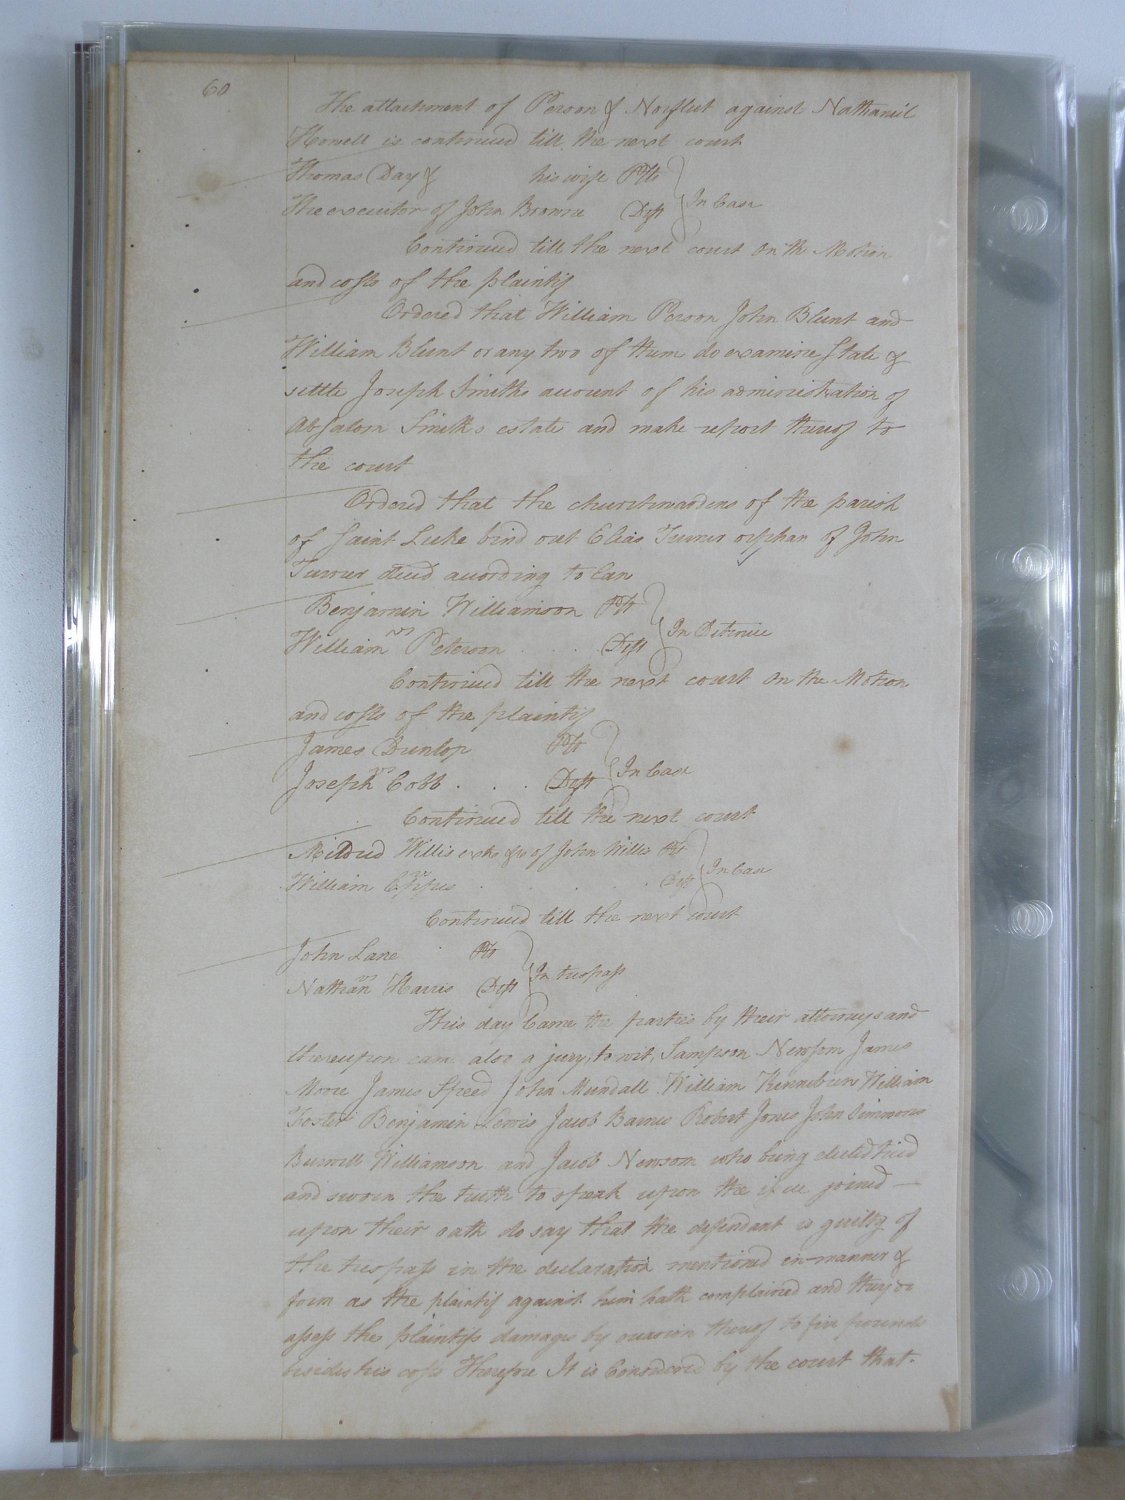 60
The attachment of Person & Norfleet against Nathaniel
Howell is continued till the next court
Thomas Day & his wife Plts
The executor of John Browne Deft } In Case
Continued till the next court On the Motion
and costs of the plaintif
Ordered that William Person John Blunt and
William Blunt or any two of them do examine state &
settle Joseph Smiths account of his administration of
Absalom Smiths estate and make report thereof to
the court
Ordered that the churchwardens of the parish
of Saint Luke bind out Elias Turner orphan of John
Turner deced according to Law
Benjamin Williamson Plt
vs } In Detinue
William Peterson . . . Deft
Continued till the next court On the Motion
and costs of the plaintif
James Dunlop Plt
vs } In Case
Joseph Cobb . . . Deft
Continued till the next court
Mildred Willis &c of John Willis Plt
vs } In Case
William . . . . Deft
Continued till the next court
John Lane Plt
vs } In trespass
Nathan Harris Deft
This day Came the parties by their attorneys and
thereupon came also a jury, to wit, Sampson Newsom James
Moore James Speed John Mundall William Kinnebrun William
Foster Benjamin Lewis Jacob Barnes Robert Jones John Simmons
Burwell Williamson and Jacob Newsom who being elected tried
and sworn the truth to speak upon the issue joined —
upon their oath do say that the defendant is guilty of
the trespass in the declaration mentioned in manner &
form as the plaintif against him hath complained and they do
assess the plaintifs damages by occasion thereof to five pounds
besides his costs Therefore It is Considered by the court that.